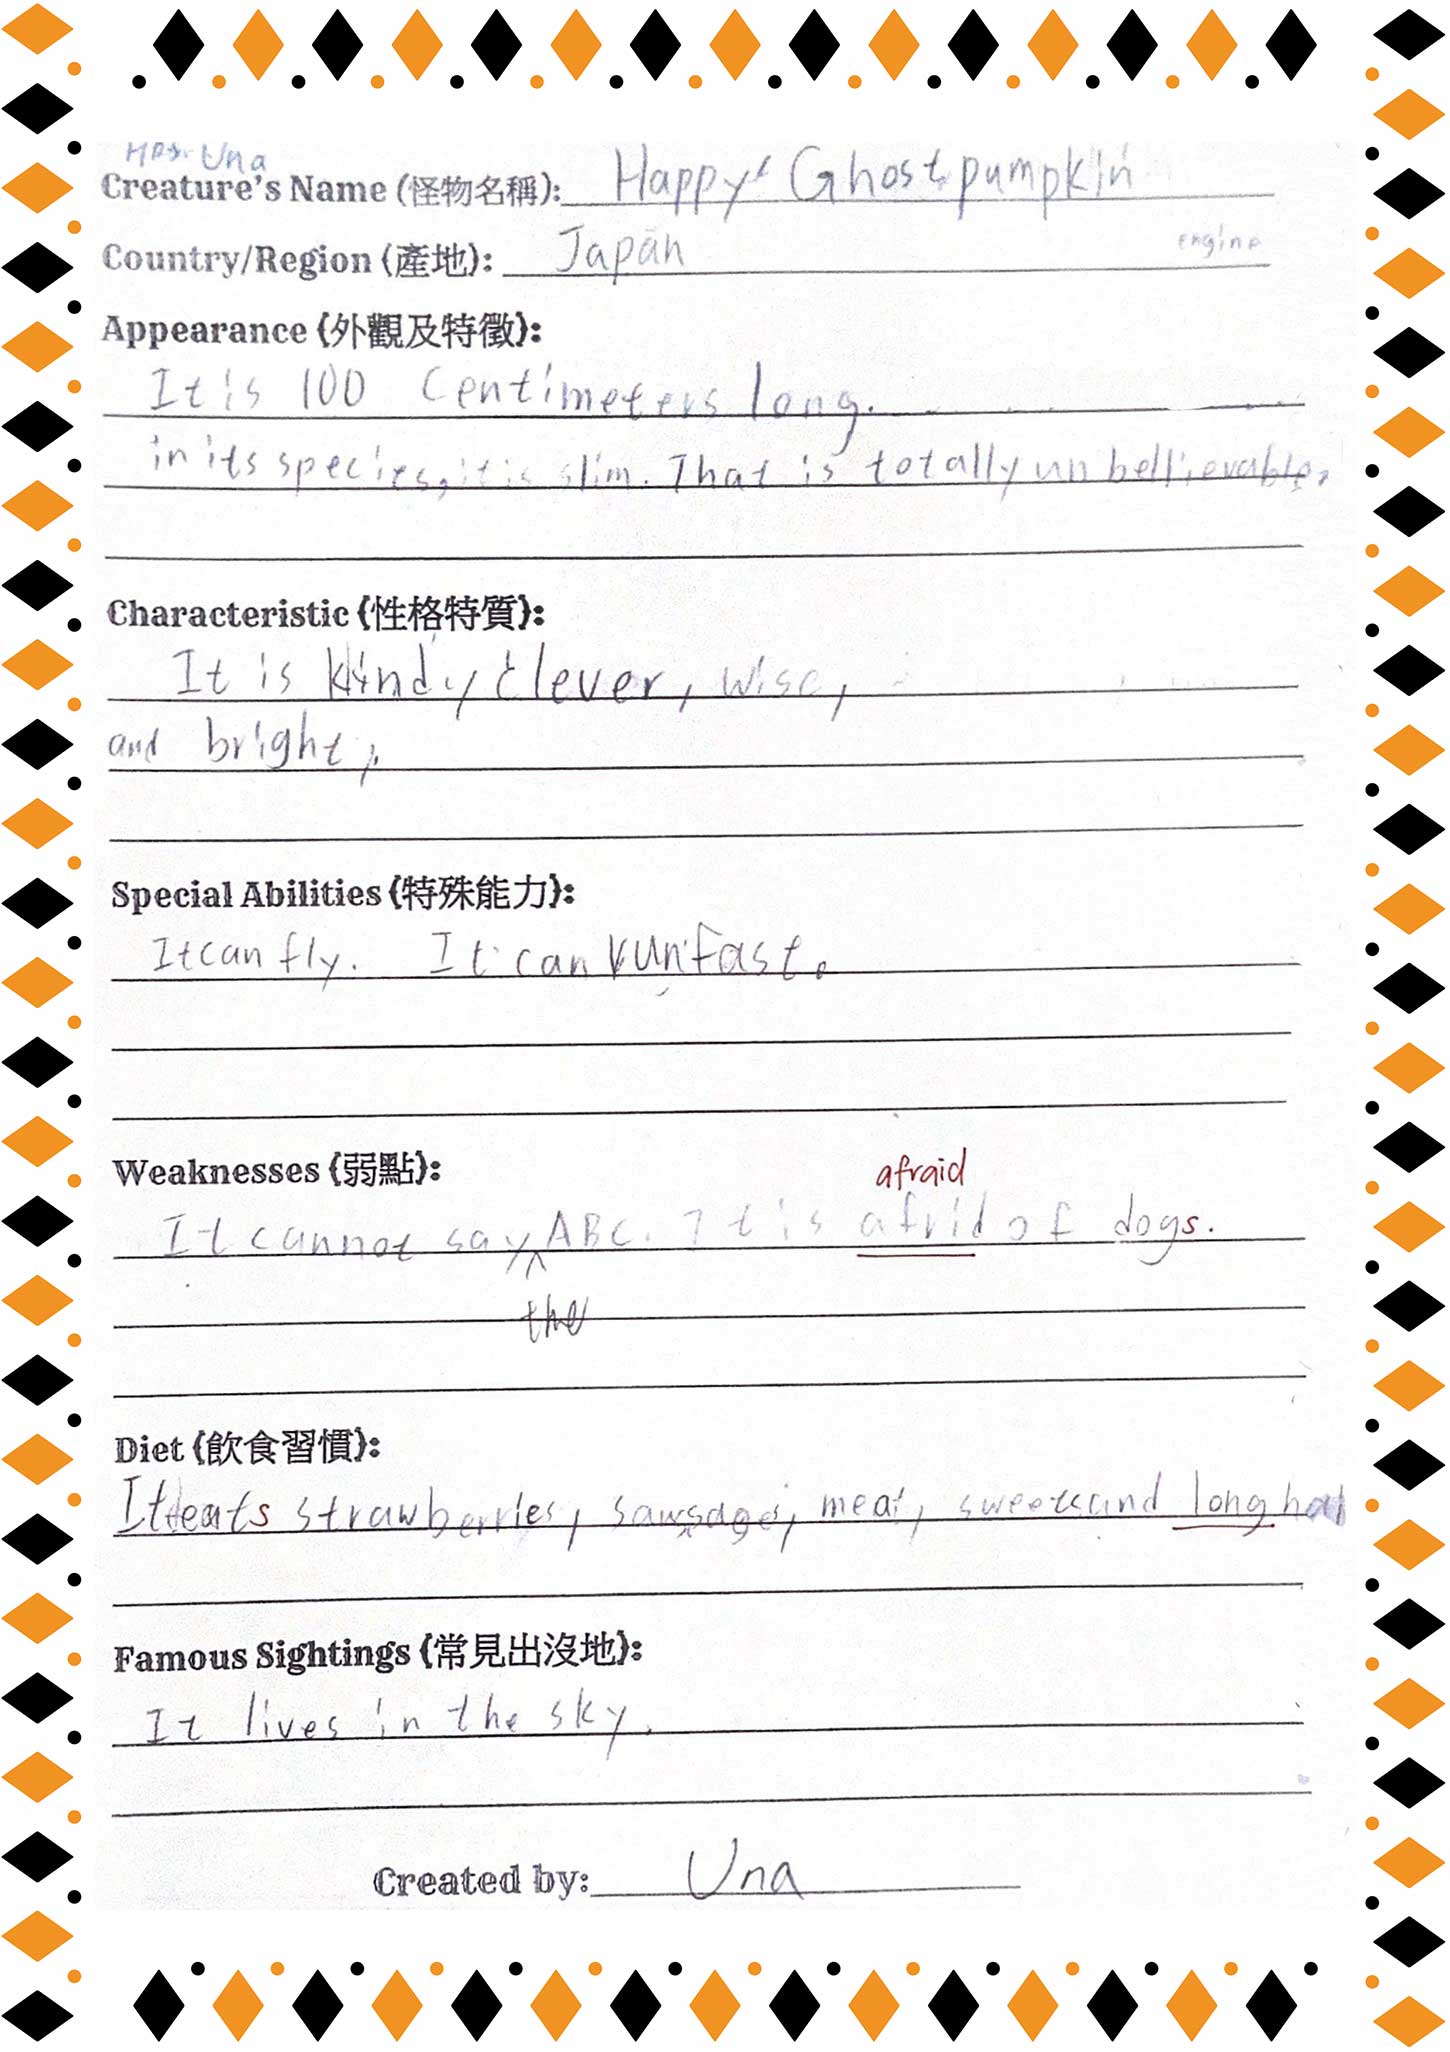 Una
Creature's Name (怪物名稱): Happy Ghost pumpkin
Country/Region (產地): Japan engine
Appearance (外觀及特徵):
It is 100 Centimeters long.
in its species, it is slim. That is totally un bellievable.
Characteristic (性格特質):
It is kind, clever, wise,
and bright.
Special Abilities (特殊能力):
It can fly. It can run fast.
Weaknesses (弱點):
afraid
It cannot say ABC. It is afrid of dogs.
the
Diet (飲食習慣):
It eats strawberries, sausage, meat, sweets and long
Famous Sightings (常見出沒地):
It lives in the sky.
Created by: Una